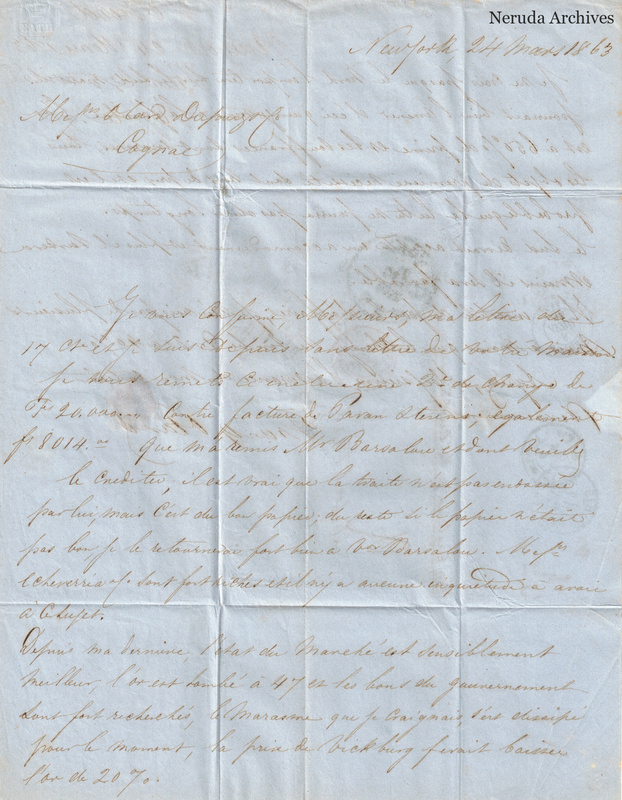 Neruda Archives
New York 24 Mars 1863
Messrs Otard Dupuy & Co
Cognac
Je vous confirme, Messieurs, ma lettre du
17 ct et je suis depuis sans lettre de votre maison
Je vous remets ci de change de
20,000 Contre facture de également
8014.— que m'a remis Mr Barsalou et dont
le créditer, il est vrai que la traite n'est pas endossée
par lui, mais c'est du bon papier; du reste si le papier n'était
pas bon je le retournerai fort bien à Barsalou. Messrs
Echeverria & Co sont fort riches et il n'y a aucune inquiétude à avoir
à ce sujet.
Depuis ma dernière, l'état du Marché est sensiblement
meilleur, l'or est tombé à 47 et les bons du gouvernement
sont fort recherchés, le Marasme que je craignais s'est dissipé
pour le moment, la prise de Vicksburg ferait baisser
l'or de 20 %.